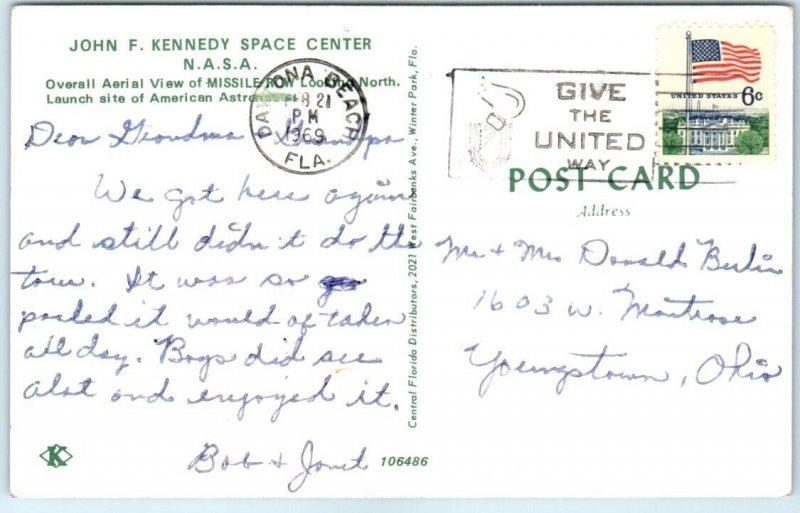 JOHN F. KENNEDY SPACE CENTER
N.A.S.A.
Overall Aerial View of MISSILE ROW Looking North.
Launch site of American Astro
DAYTONA BEACH
FEB 21
PM
1969
FLA.
GIVE
THE
UNITED
WAY
UNITED STATES 6c
POST CARD
Address
Dear Grandma + Grandpa
We got here again
and still didn't do the
tour. It was so
packed it would of taken
all day. Boys did see
alot and enjoyed it.
Bob + Janet
Mr + Mrs Donald
1603 W. Montrose
Youngstown, Ohio
Central Florida Distributors, 2021 West Fairbanks Ave., Winter Park, Fla.
K
106486